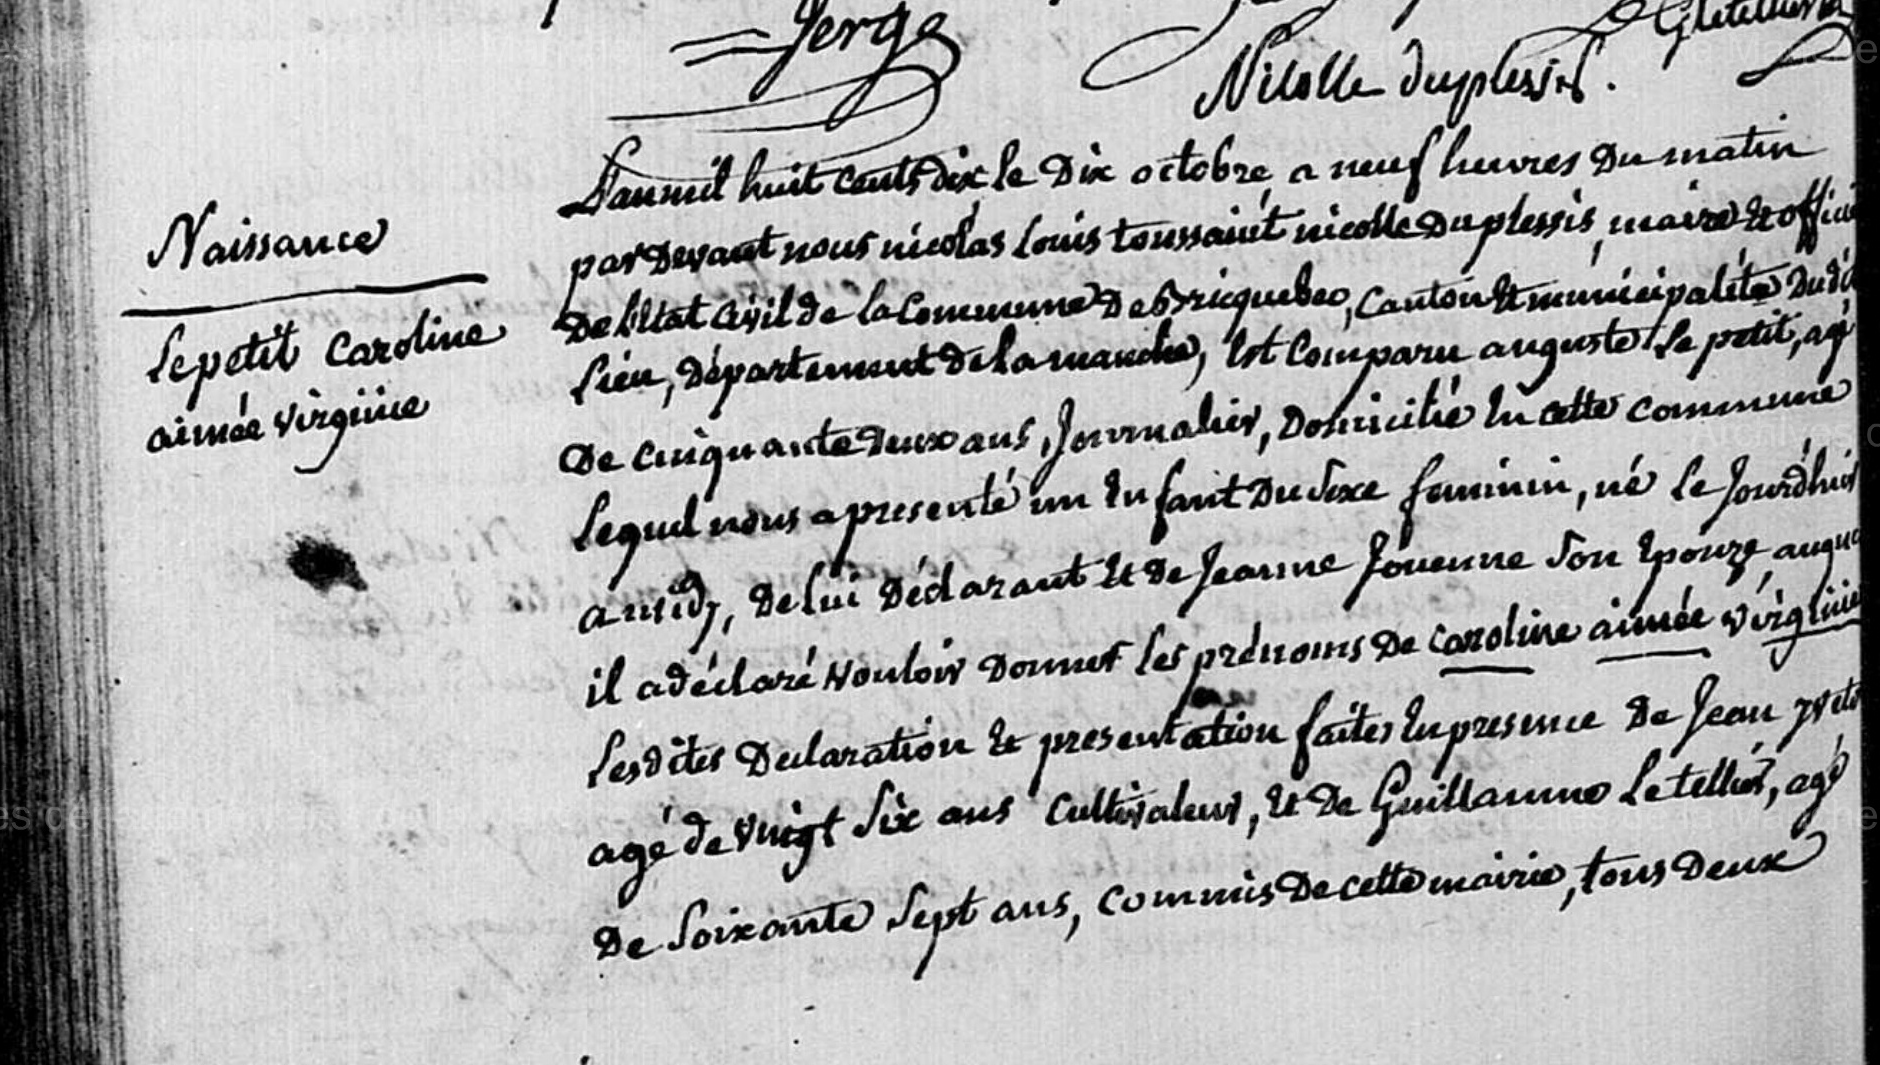 Jerge
Gletellier
Nicolle duplessis.
L'an mil huit cents dix le Dix octobre a neuf heures Du matin
Naissance
par Devant nous nicolas Louis toussaint nicolle Duplessis, maire Et offici
De l'Etat Civil de la Commune De Bricquebec, Canton Et municipalité Du dit
Lepetit Caroline
Lieu, Département De la manche, Est Comparu auguste Le petit, agé
aimée virginie
De cinquante Deux ans, Journalier, Domicilié En cette commune
Lequel nous a presenté un Enfant Du Sexe feminin, né Le Jourd'hui
, De lui Déclarant Et De Jeanne Jouenne Son Epouze auquel
il a déclaré vouloir Donner Les prénoms De Caroline aimée virginie
Lesdites Declaration Et presentation faites En presence De Jean
agé de vingt Six ans Cultivateur, Et De Guillaume Letellier, agé
De Soixante Sept ans, Commis De cette mairie, tous Deux